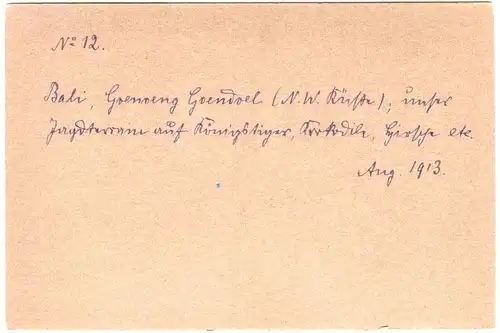 No 12.
Bali, Goenoeng Goendoel (N. W. Küste); unser
Jagdterrain auf Königstiger, Krokodile, Hirsche etc.
Aug. 1913.